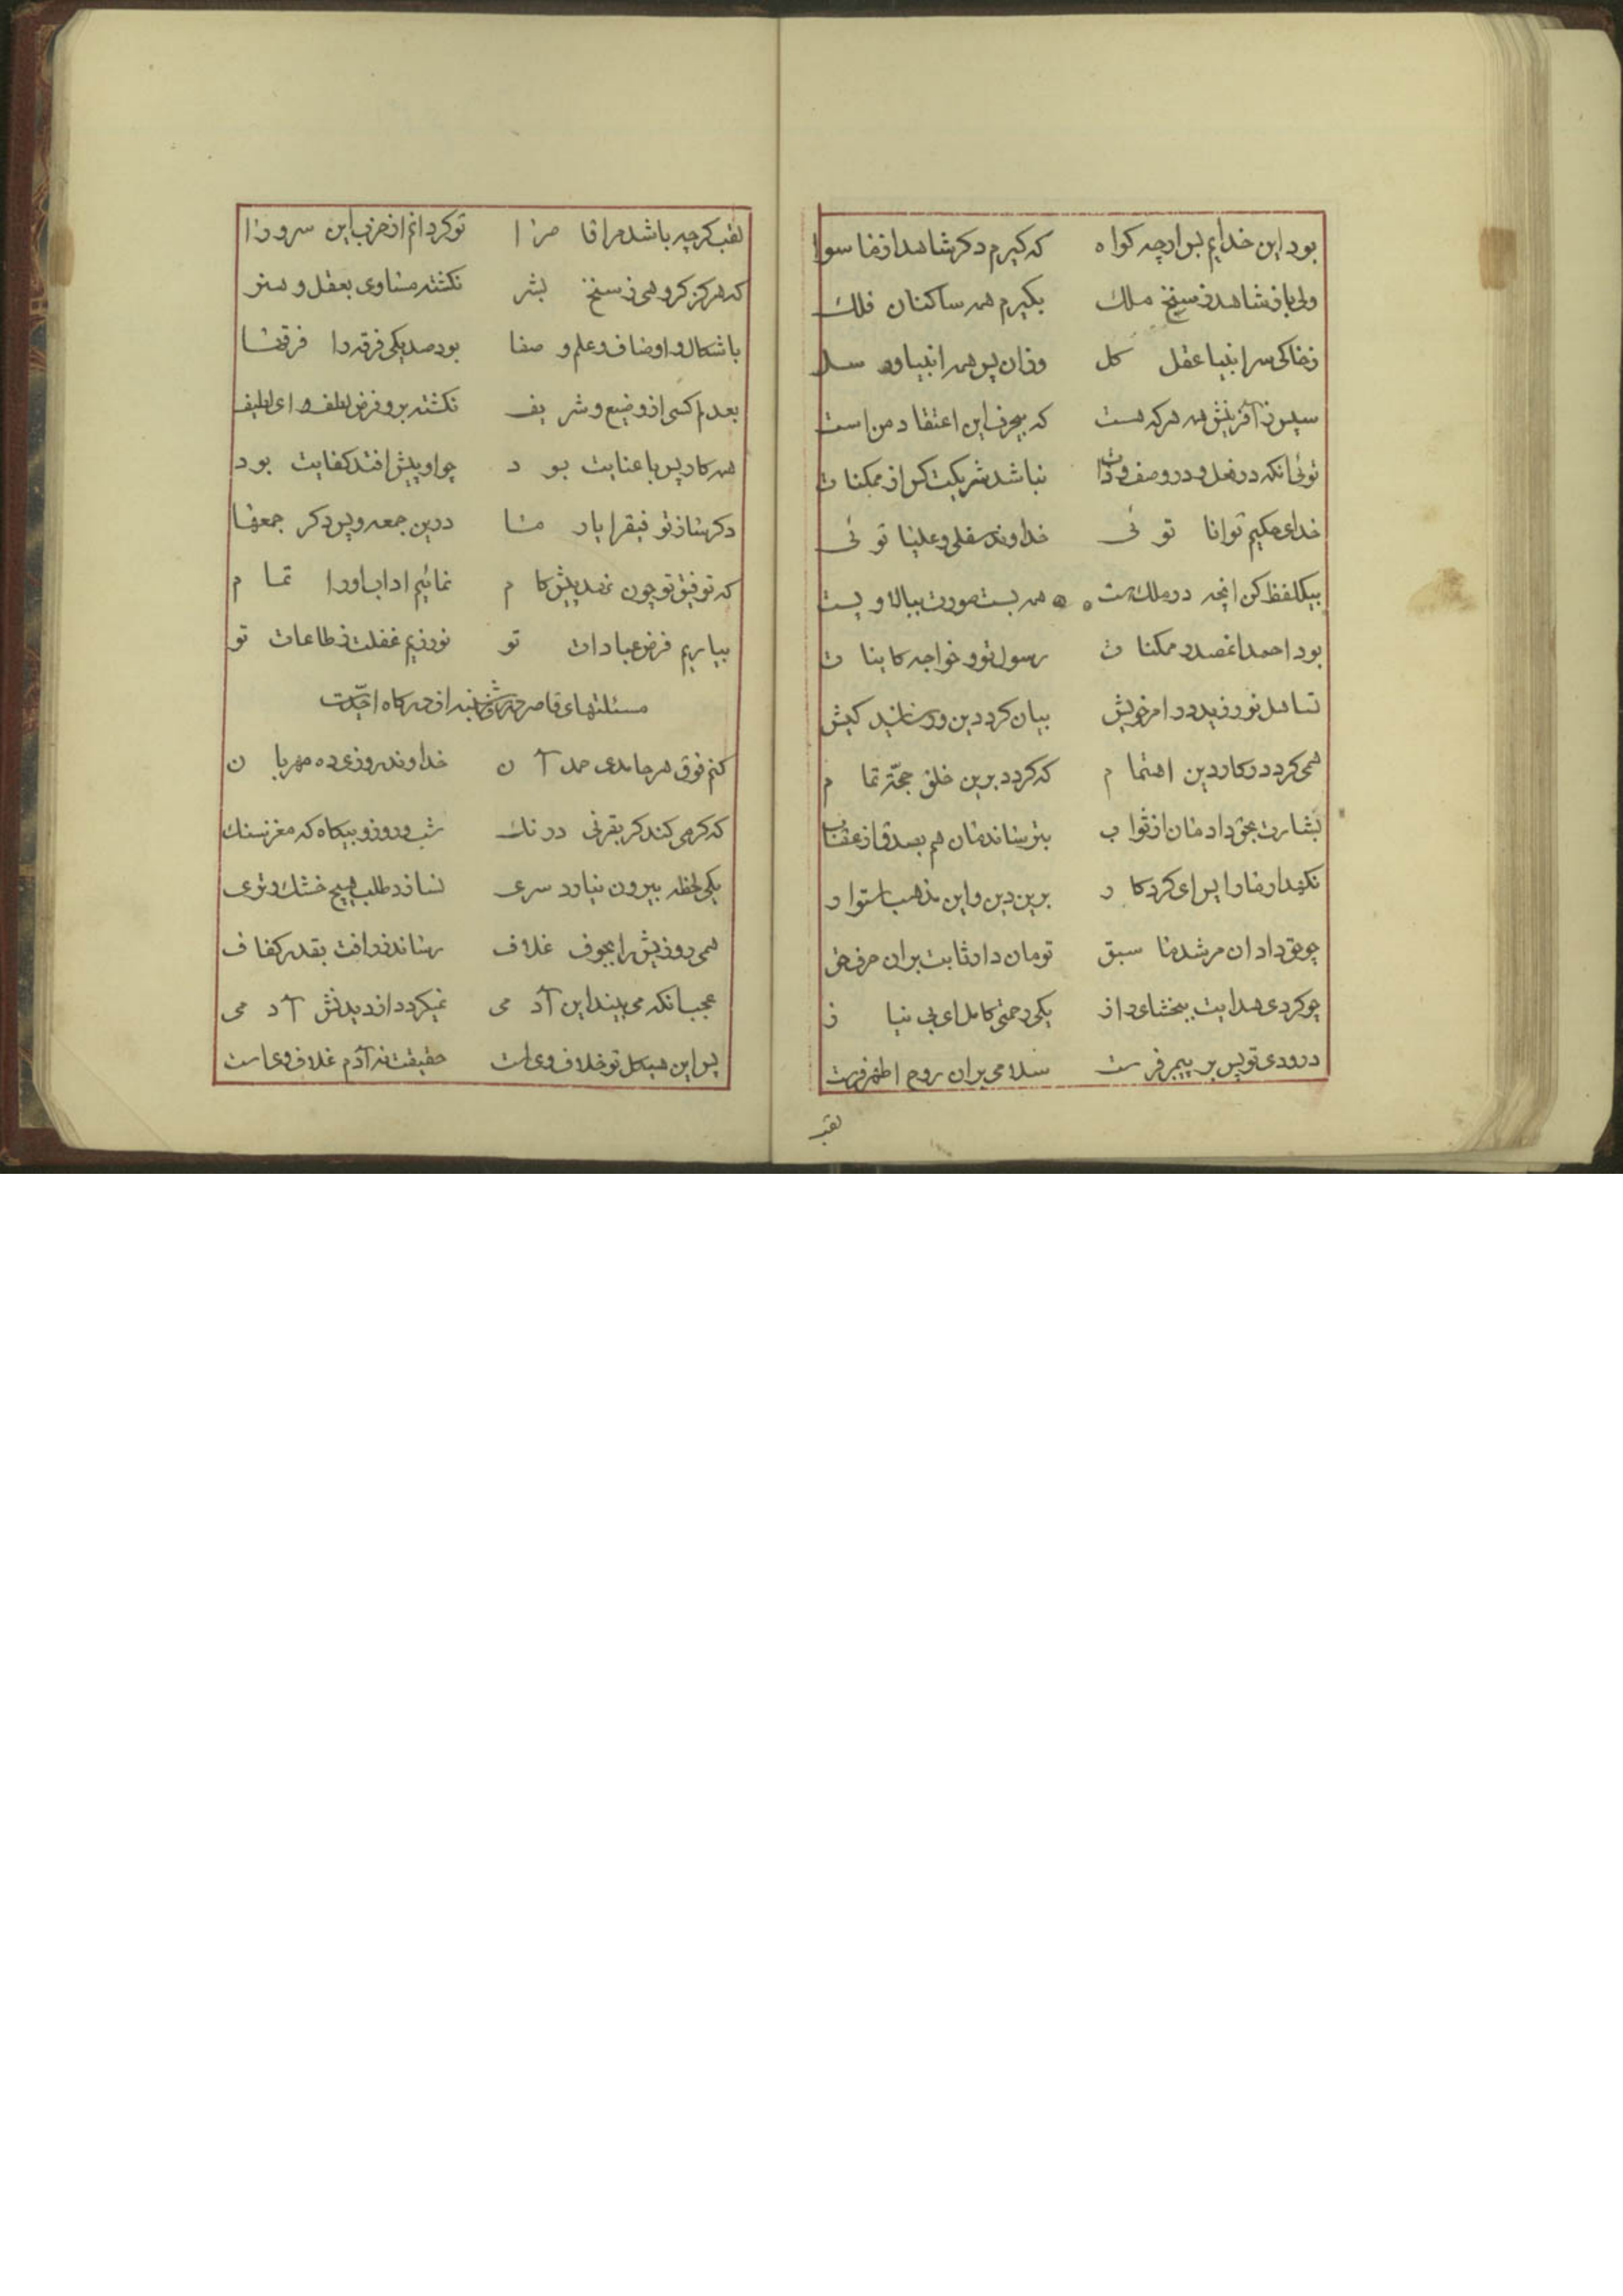 بود این خدایم بس ارچه کواه که کیرم دکر شاهد از ما سوا
ولی باز شاهد ز سنخ ملک بکیرم همه ساکنان فلک
ز خاکی سرانبیا عقل کل وزان پس همه انبیا و رسل
سپس ز آفرینش همه هرکه هست که بیحرف این اعتقاد من است
توئی انکه در فعل و در وصف و ذات نباشد شریکت کس از ممکنات
خدای حکیم توانا توئی خداوند سفلی و علیا توئی
بیکلفظ کن انچه در ملک هست همه بست صورت ببالا و پست
بود احمدا ممکنات رسول تو و خواجه کاینات
تساهل نورزید در امر خویش بیان کرد دین و رسانید کیش
همی کرد در کار دین اهتمام که کردد برین خلق حجّة تمام
بشارت بحق داد مان از ثواب بترساند مان هم بصدق از عقاب
نکهدار ما را پس ای کردکار برین دین و این مذهب استوار
چو حق داد ان مرشد ما سبق تو مان دار ثابت بران حرف حق
چو کردی هدایت ببخشای و از یکی رحمتی کامل ای بی نیاز
درودی تو پس بر پیمبر فرست سلامی بران روح اطهر فرست
لقب
لقب کرچه باشد مر اقا مرا تو کردانم از حزب این سرورا
که هرکز کروهی ز سنخ بشر نکشته مساوی بعقل و هنر
باشکال و اوصاف و علم و صفا بود صد یکی فرقه را فرقها
بعدم کسی از وضیع و شریف نکشته برو فرض لطف و ای لطیف
همه کار پس با عنایت بود چو او پیش افتد کفایت بود
دکر ساز توفیق را یار ما درین جمعه و پس دکر جمعها
که توفیق تو چون نهد پیش کام نمائیم اداب اورا تمام
بیاریم فرض عبادات تو نورزیم غفلت ز طاعات تو
مسئلتهای قاصر از درکاه احدیّت
کنم فوق هر حامدی حمد آن خداوند روزی ده مهربان
که کرمی کند کر بقرنی درنک شب و روز و بیکاه که مغز سنک
یکی لحظه بیرون نیاورد سری نسازد طلب هیچ خشک و تری
همی روزیش را بجوف غلاف رساند ز رافت بقدر کفاف
عجب انکه می بیند این آدمی نمیکردد از دیدنش آدمی
پس این هیکل تو خلاف وی است حقیقت نه آدم غلاف وی است